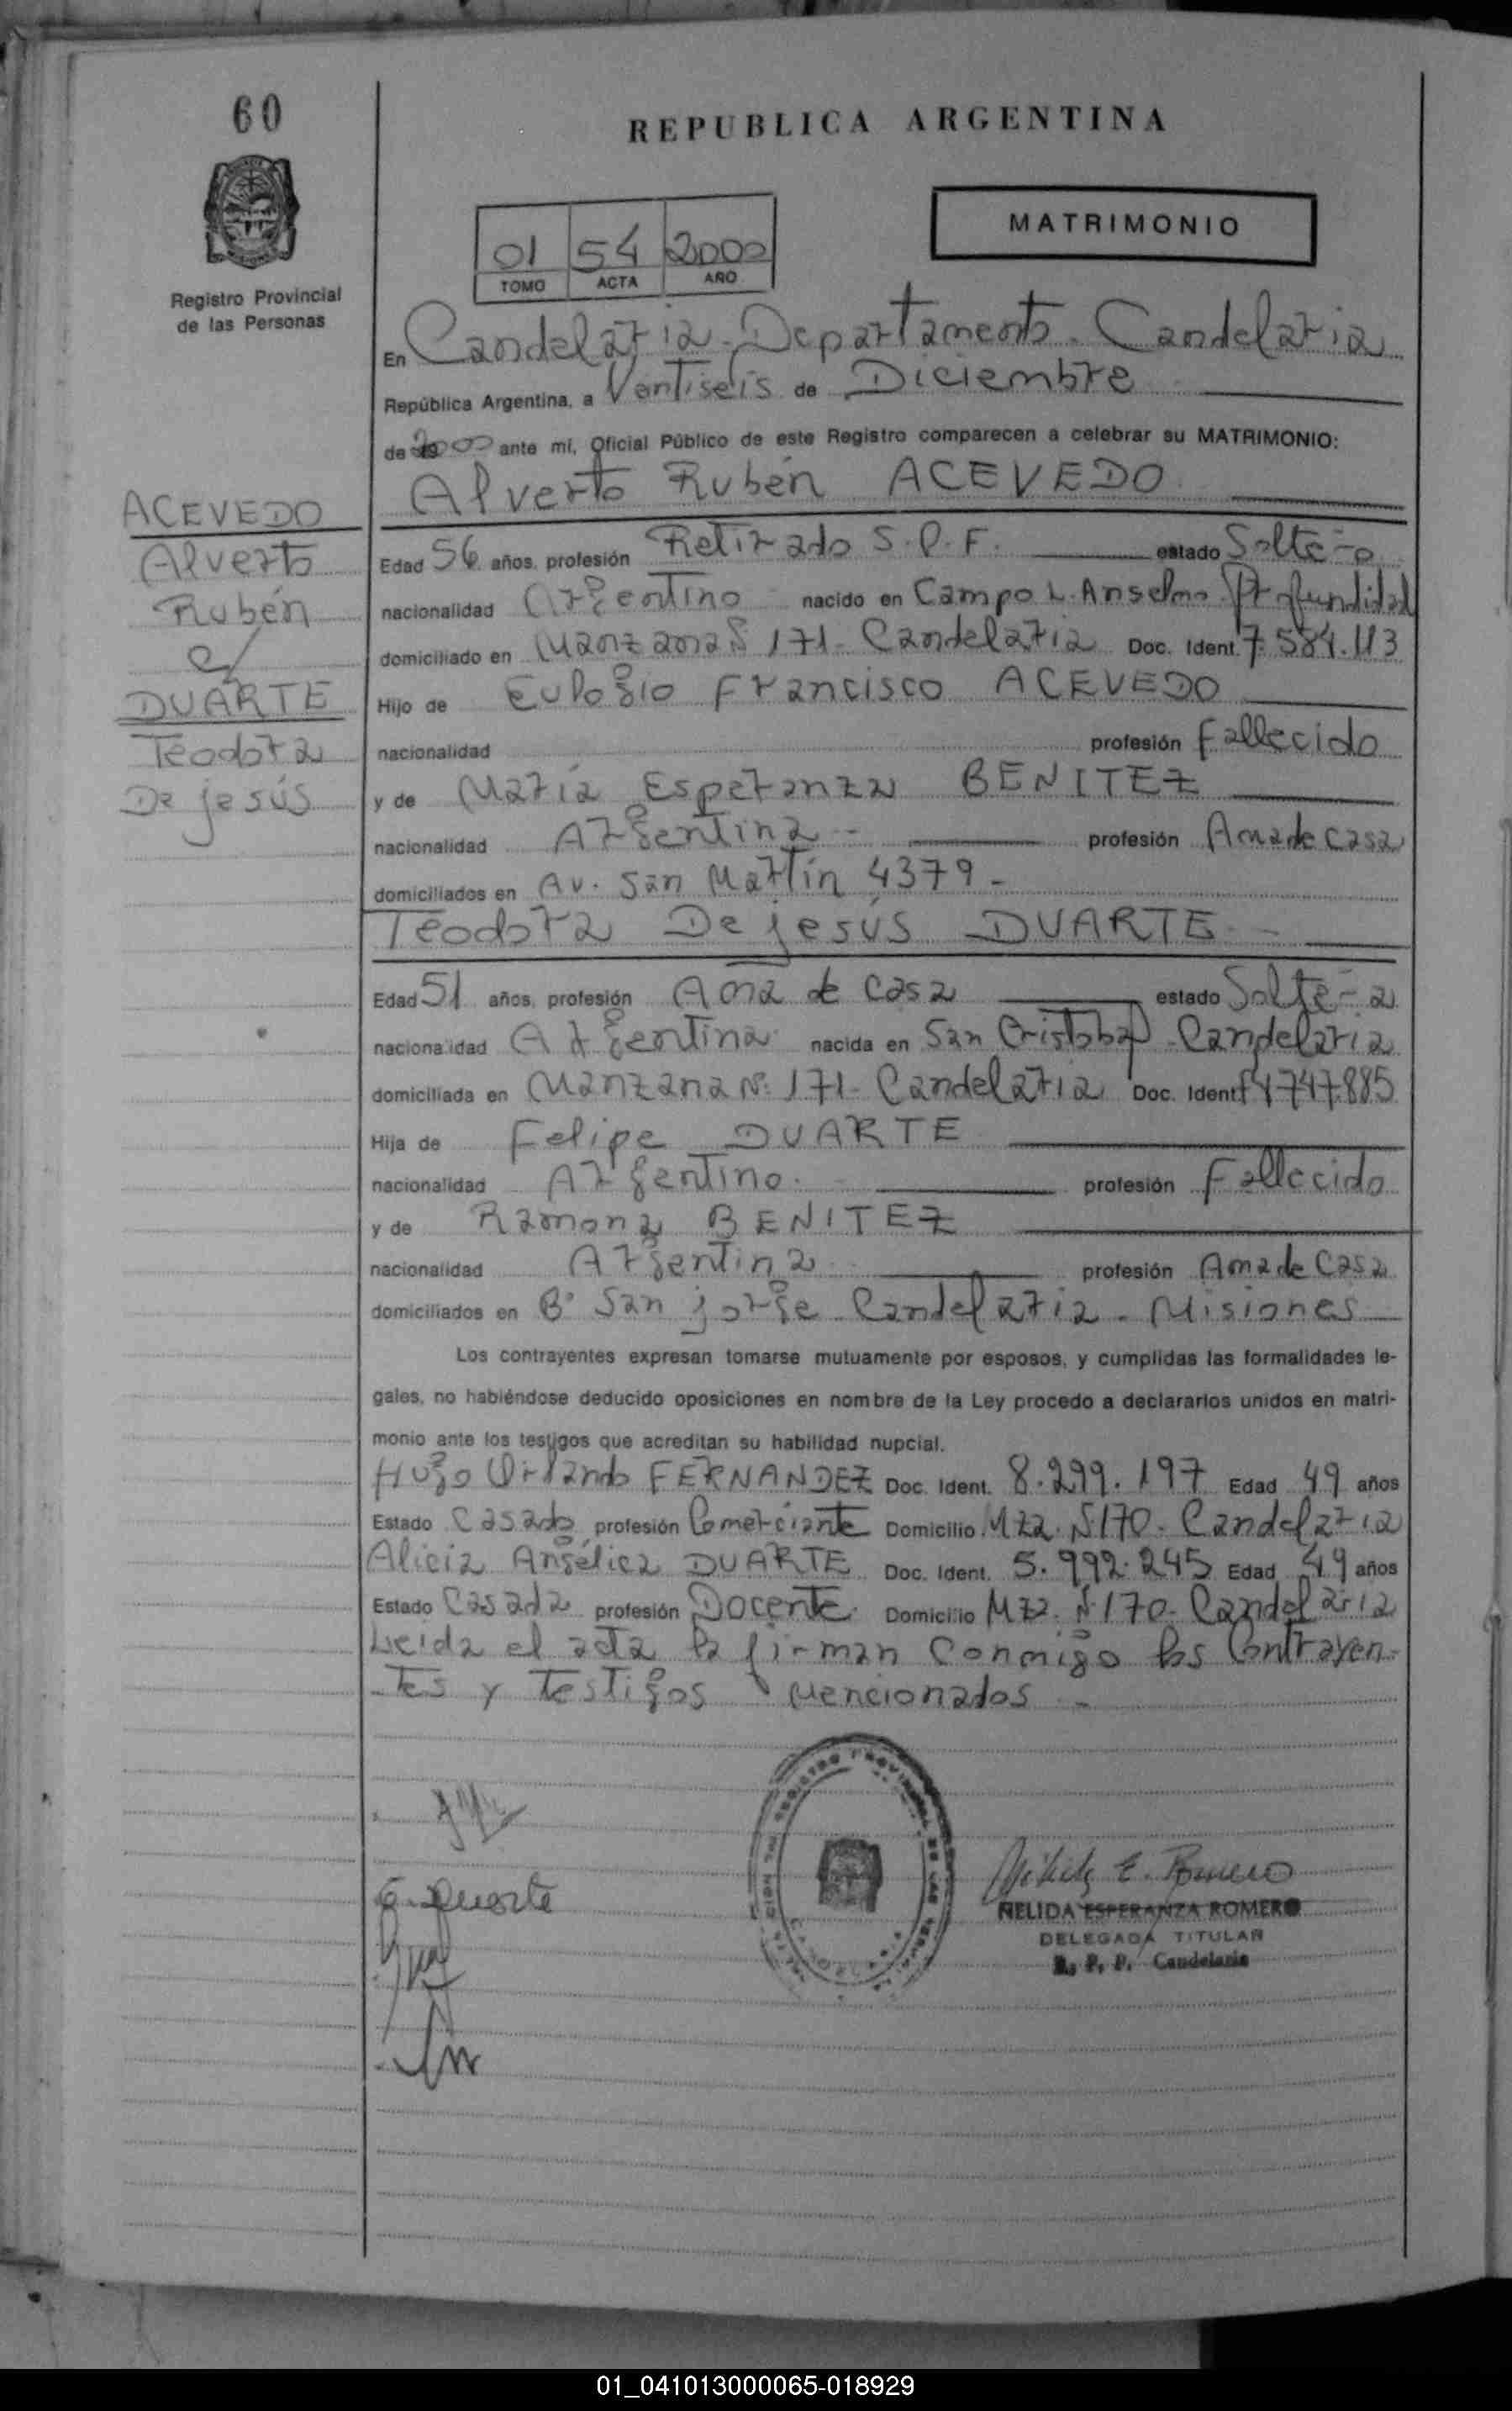 60
REPUBLICA ARGENTINA
MATRIMONIO
01 54 2000
TOMO ACTA AÑO
Registro Provincial
de las Personas
En Candelaria - Departamento - Candelaria
República Argentina, a Ventiseis de Diciembre
de 2000 ante mí, Oficial Público de este Registro comparecen a celebrar su MATRIMONIO:
Alverto Rubén ACEVEDO
ACEVEDO
Alverto
Rubén
c/
DUARTE
Teodora
De jesús
Edad 56 años, profesión Retirado S.P.F. estado Solte-o
nacionalidad Argentino nacido en Campo L. Anselmo Profundidad
domiciliado en Manzana N 171 - Candelaria Doc. Ident. 7.584.113
Hijo de Eulogio Francisco ACEVEDO
nacionalidad profesión Fallecido
y de María Esperanza BENITEZ
nacionalidad Argentina - profesión Ama de casa
domiciliados en Av. San Martín 4379 -
Teodora De jesús DUARTE -
Edad 51 años, profesión Ama de Casa estado Solte-a
nacionalidad Argentina nacida en San Cristobal - Candelaria
domiciliada en Manzana Nº 171 - Candelaria Doc. Ident. F4747.885
Hija de Felipe DUARTE
nacionalidad Argentino. profesión Fallecido
y de Ramona BENITEZ
nacionalidad Argentina profesión Ama de Casa
domiciliados en Bº San jorge Candelaria - Misiones
Los contrayentes expresan tomarse mutuamente por esposos, y cumplidas las formalidades le-
gales, no habiéndose deducido oposiciones en nombre de la Ley procedo a declararlos unidos en matri-
monio ante los testigos que acreditan su habilidad nupcial.
Hugo Orlando FERNANDEZ Doc. Ident. 8.299.197 Edad 49 años
Estado Casado profesión Comerciante Domicilio Mza. N170 - Candelaria
Alicia Angélica DUARTE Doc. Ident. 5.992.245 Edad 49 años
Estado Casada profesión Docente Domicilio Mza. N170 - Candelaria
Leida el acta la firman conmigo los Contrayen-
-tes y testigos mencionados -
Duarte
Nélida E. Romero
NELIDA ESPERANZA ROMERO
DELEGADA TITULAR
R. P. P. Candelaria
01_041013000065-018929